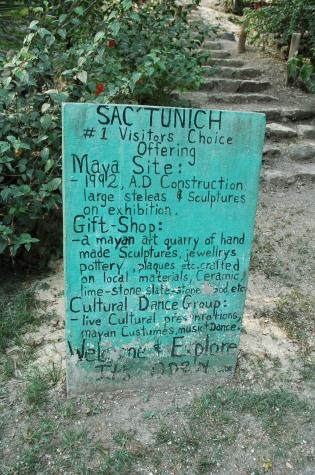 SAC'TUNICH
#1 Visitors Choice
Offering
Maya Site:
- 1992, A.D Construction
large steleas & Sculptures
on exhibition.
Gift-Shop:
-a mayan art quarry of hand
made Sculptures, jewellrys
pottery, plaques etc. crafted
on local materials, Ceramic
lime-stone, slate-stone, wood, etc
Cultural Dance Group:
- live Cultural presentations,
mayan Custumes, music & Dance.
Welcome & Explore